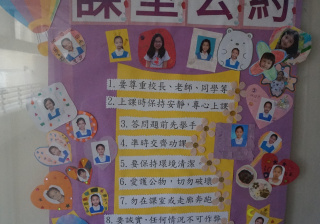 課室公約
1. 要尊重校長、老師、同學等
2. 上課時保持安靜，專心上課
3. 答問題前先舉手
4. 準時交齊功課
5. 要保持環境清潔
6. 愛護公物，切勿破壞
7. 勿在課室或走廊奔跑
8. 要誠實，任何情況不可作弊